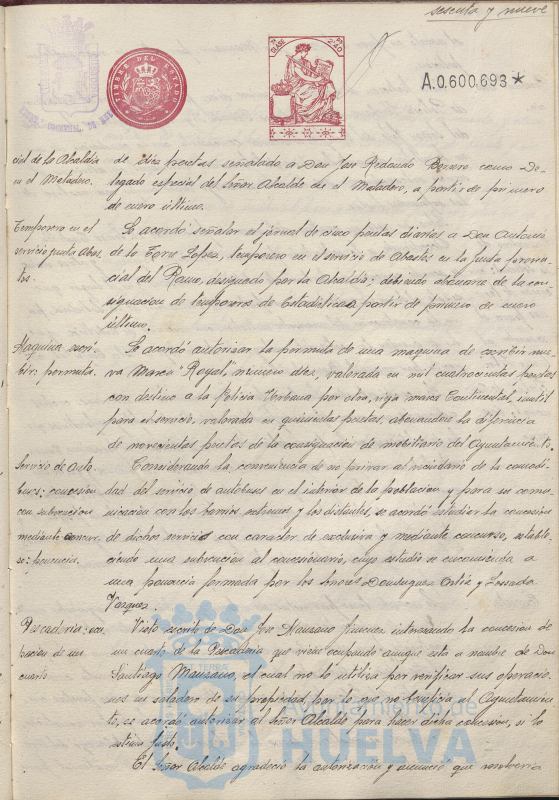 sesenta y nueve
TIMBRE DEL ESTADO
7ª CLASE
2,40
A.0.600,693*
cial de la Alcaldia
en el Matadero.
de diez pesetas señalado a Don Jose Redondo Borrero como De-
legado especial del Señor Alcalde en el Matadero, a partir de primero
de enero último.
Temporero en el
servicio Junta Abas-
tos.
Se acordó señalar el jornal de cinco pesetas diarias a Don Antonio
de la Torre Lopez, temporero en el servicio de Abastos en la Junta provin-
cial del Ramo, designado por la Alcaldia; debiendo abonarse de la con-
signacion de temporeros de Estadistica a partir de primero de enero
último.
Maquina escri-
bir: permuta.
Se acordó autorizar la permuta de una maquina de escribir nue-
va Marca "Royal, numero diez, valorada en mil cuatrocientas pesetas
con destino a la Policia Urbana por otra, vieja marca Continental, inutil
para el servicio, valorada en quinientas pesetas, abonandose la diferencia
de novecientas pesetas de la consignacion de mobiliario del Ayuntamiento.
Servicio de Auto-
buses: concesion
con subvencion
mediante concur-
so: ponencia.
Considerando la conveniencia de no privar al vecindario de la comodi-
dad del servicio de autobuses en el interior de la poblacion y para su comu-
nicacion con los barrios extremos y los distantes, se acordó estudiar la concesion
de dicho servicio con caracter de exclusiva y mediante concurso, estable-
ciendo una subvencion al concesionario, cuyo estudio se encomienda a
una ponencia formada por los Señores Dominguez Ortiz y Lossada
Vazquez.
Pescaderia: ocu-
pacion de un
cuarto
Visto escrito de Don Jose Manzano Jimenez interesando la concesion de
un cuarto de la Pescaderia que viene ocupando aunque esta a nombre de Don
Santiago Manzano, el cual no lo utiliza por verificar sus operacio-
nes en saladero de su propiedad por lo que no beneficia al Ayuntamien-
to, se acordó autorizar al Señor Alcalde para hacer dicha concesion, si lo
estima justo.
El Señor Alcalde agradeció la autorización y anunció que resolveria
TERRA
Ayuntamiento de
HUELVA